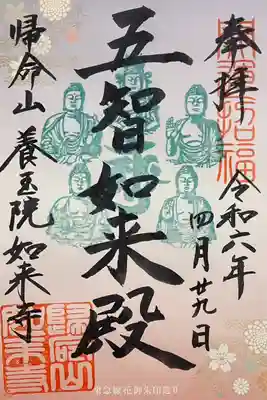 奉拝
令和六年
四月廿九日
五智如来殿
帰命山 養玉院 如来寺